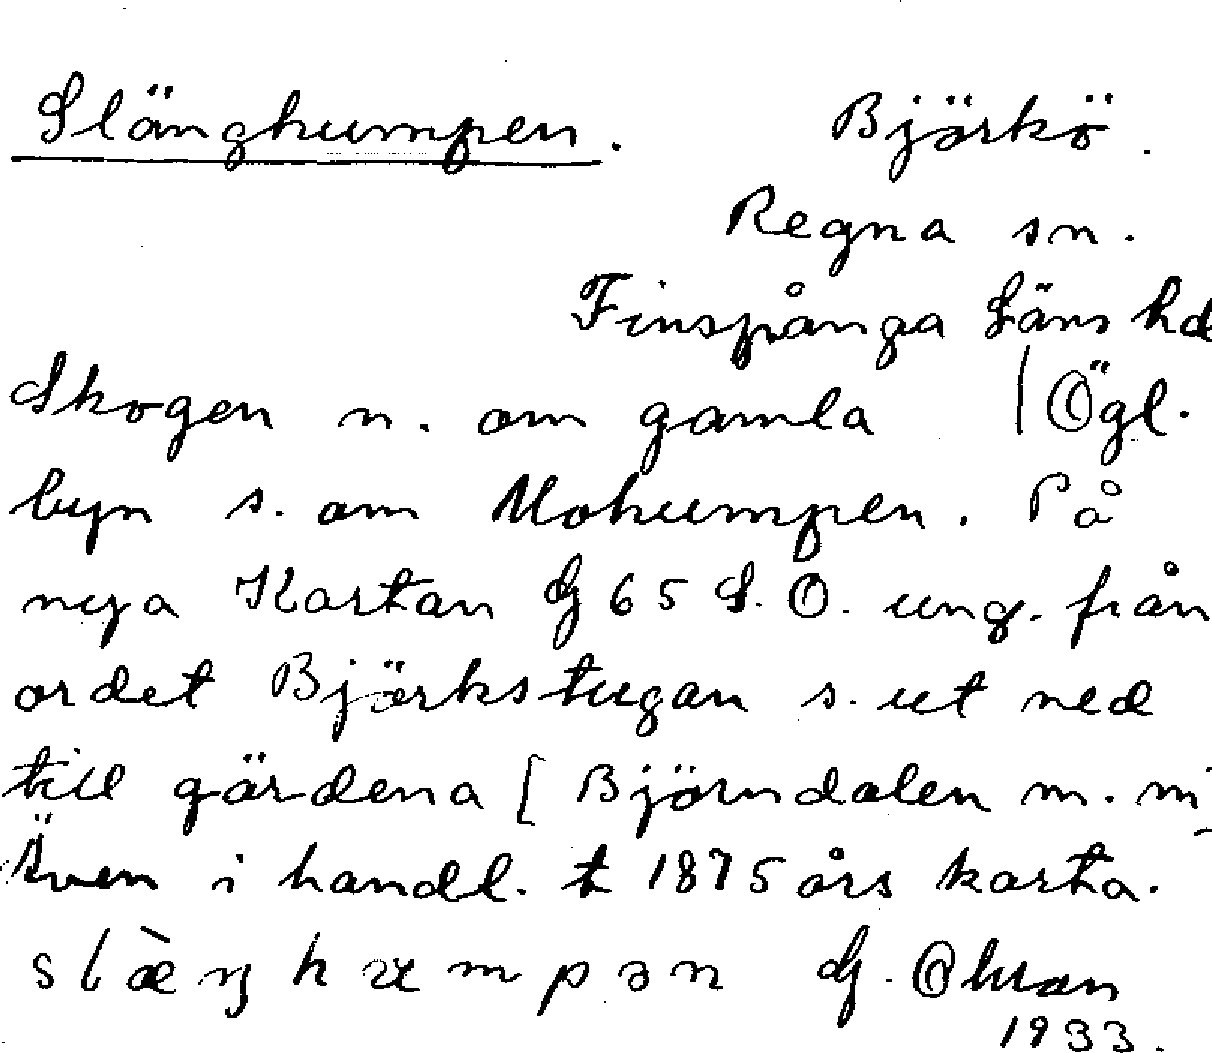 Slänghumpen. Björkö.
Regna sn.
Finspånga Läns hd
Skogen n. om gamla | Ögl.
byn s. om Mohumpen. På
nya Kartan G 65 S.O. ung. från
ordet Björkstugan s. ut ned
till gärdena [ Björndalen m. m
Även i handl. t 1875 års karta.
slæ̀ŋhumpən G.
1933.